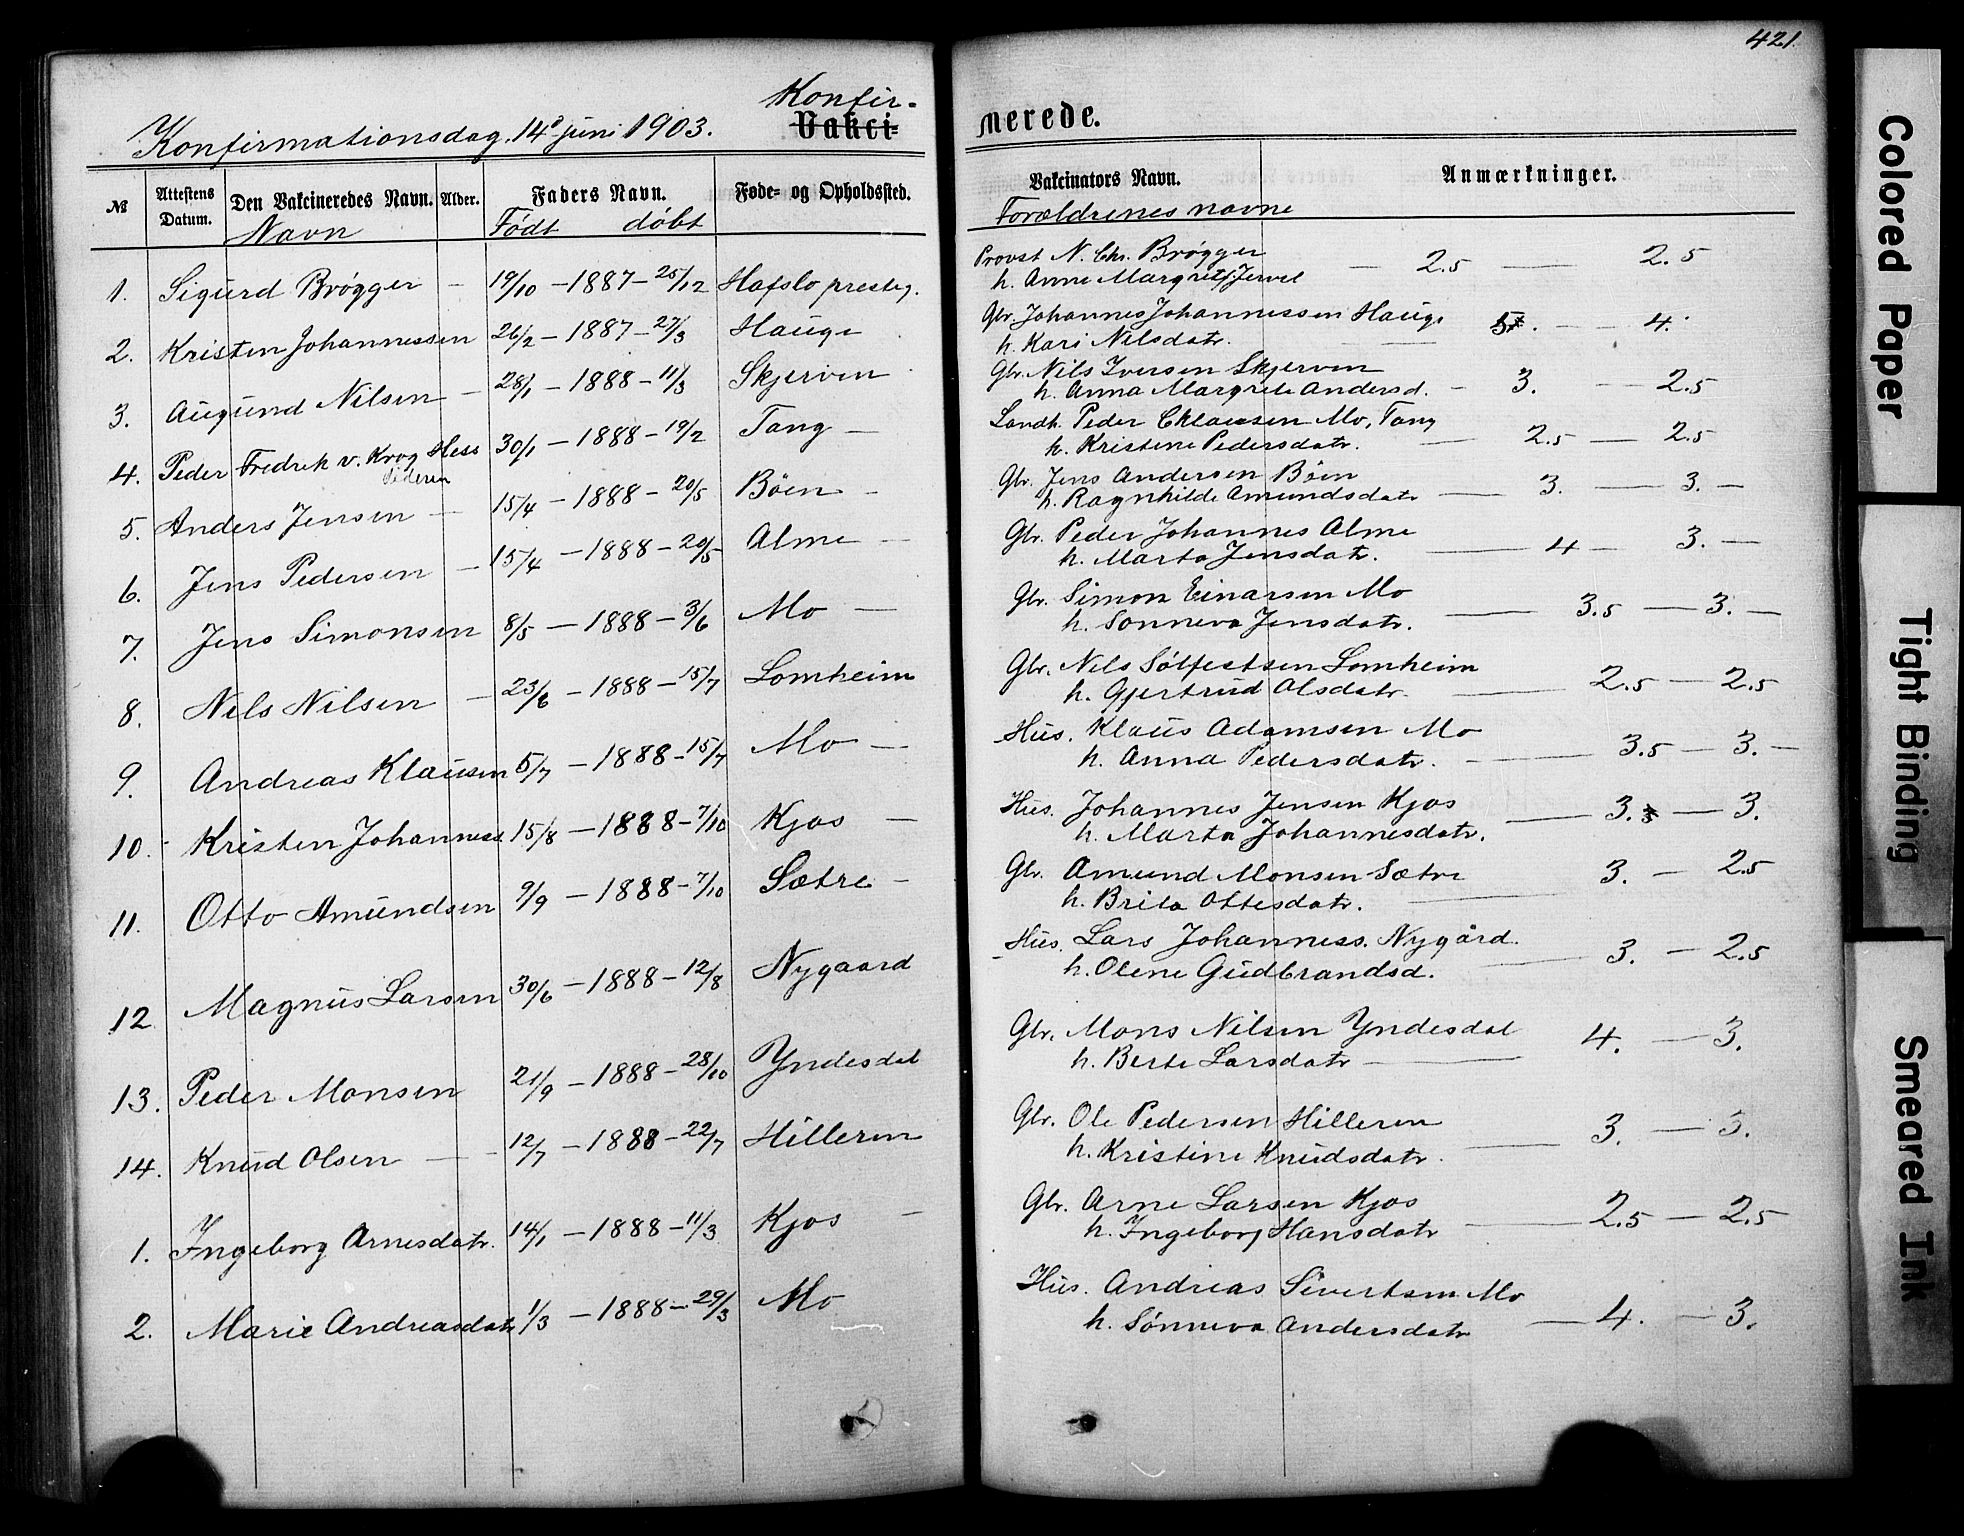 421.
Konfirmationsdag. 14de juni 1903.
Konfir-
Vakci=
merede.
№ Attestens Datum. Den Vakcineredes Navn. Alder. Faders Navn. Føde= og Opholdssted.
Navn Født døbt
Vakcinators Navn. Anmærkninger.
Forældrenes navne
1. Sigurd Brøgger 19/10 - 1887 - 25/12 Hafslo prestg.
Provst N. Chr. Brøgger — 2.5 — 2.5
h. Anne Margrete f. Jervel
2. Kristen Johannessen 26/2 - 1887 - 27/3 Hauge
Gbr. Johannes Johannessen Hauge — 4.
h. Kari Nilsdatr.
3. Augund Nilsen — 28/1 - 1888 - 11/3 Skjerven
Gbr. Nils Iversen Skjerven
h. Anna Margrete Andersd. — 3. — 2.5
4. Peder Fredrek v. Krog Hess 30/1 - 1888 - 19/2 Tang —
Pedersen
Landh. Peder Cklausen Mo, Tang
h. Kristine Pedersdatr. — 2.5 — 2.5
5. Anders Jensen — 15/4 - 1888 - 20/5 Böen —
Gbr. Jens Andersen Böen
h. Ragnhilde Amundsdatr — 3. — 3. —
6. Jens Pedersen — 15/4 - 1888 - 20/5 Alme —
Gbr. Peder Johannes Alme
h. Marta Jensdatr. — 4 — 3. —
7. Jens Simonsen 8/5 - 1888 - 3/6 Mo —
Gbr. Simon Einarsen Mo
h. Sonneva Jensdatr. — 3.5 — 3. —
8. Nils Nilsen — 23/6 - 1888 - 15/7 Lomheim
Gbr. Nils Sølfestsen Lomheim
h. Gjertrud Olsdatr. — 2.5 — 2.5
9. Andreas Klausen 5/7 - 1888 - 15/7 Mo —
Hus. Klaus Adamsen Mo
h. Anna Pedersdatr. — 3.5 — 3. —
10. Kristen Johanness. 15/8 - 1888 - 7/10 Kjos —
Hus. Johannes Jensen Kjos
h. Marta Johannesdatr. — 3. — 3.
11. Otto Amundsen 9/9 - 1888 - 7/10 Sætre —
Gbr. Amund Monsen Sætre 3. — 2.5
h. Brita Ottesdatr. —
12. Magnus Larsen 30/6 - 1888 - 12/8 Nygaard
Hus. Lars Johanness. Nygård.
h. Olene Gudbrandsd. — 3. — 2.5
13. Peder Monsen 21/9 - 1888 - 28/10 Yndesdal
Gbr. Mons Nilsen Yndesdal
h. Berte Larsdatr — 4. — 3.
14. Knud Olsen — 12/7 - 1888 - 22/7 Hilleren
Gbr. Ole Pedersen Hilleren
h. Kristine Knudsdatr. — 3. — 3.
1. Ingeborg Arnesdatr. 14/1 - 1888 - 11/3 Kjos —
Gbr. Arne Larsen Kjos
h. Ingeborg Hansdatr — 2.5 — 2.5
2. Marie Andreasdatr 1/3 - 1888 - 29/3 Mo
Hus. Andreas Sivertsen Mo
h. Sönneva Andersdatr — 4. — 3.
Colored Paper
Tight Binding
Smeared Ink